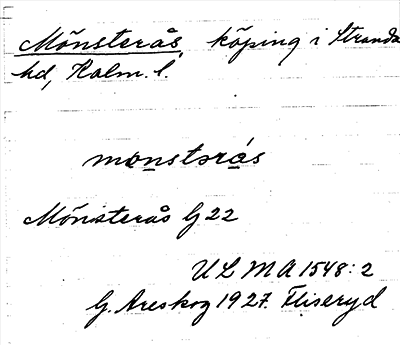 Mönsterås, köping i Stranda
hd, Kalm. l.
mȯnstərás
Mönsterås G 22
ULMA 1548:2
G. Areskog 1927. Fliseryd